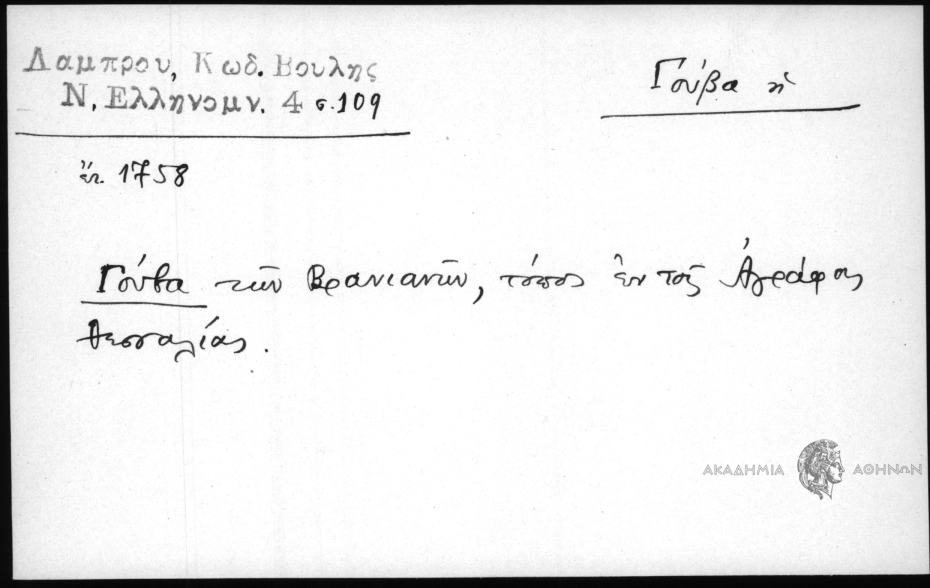 Λαμπρου, Κωδ. Βουλης
Ν. Ελληνομν. 4 σ. 109
Γούβα ἡ
ἔτ. 1758
Γούβα τῶν Βρανιανῶν, τόπος ἐν τοῖς Ἀγράφοις
Θεσσαλίας.
ΑΚΑΔΗΜΙΑ ΑΘΗΝΩΝ